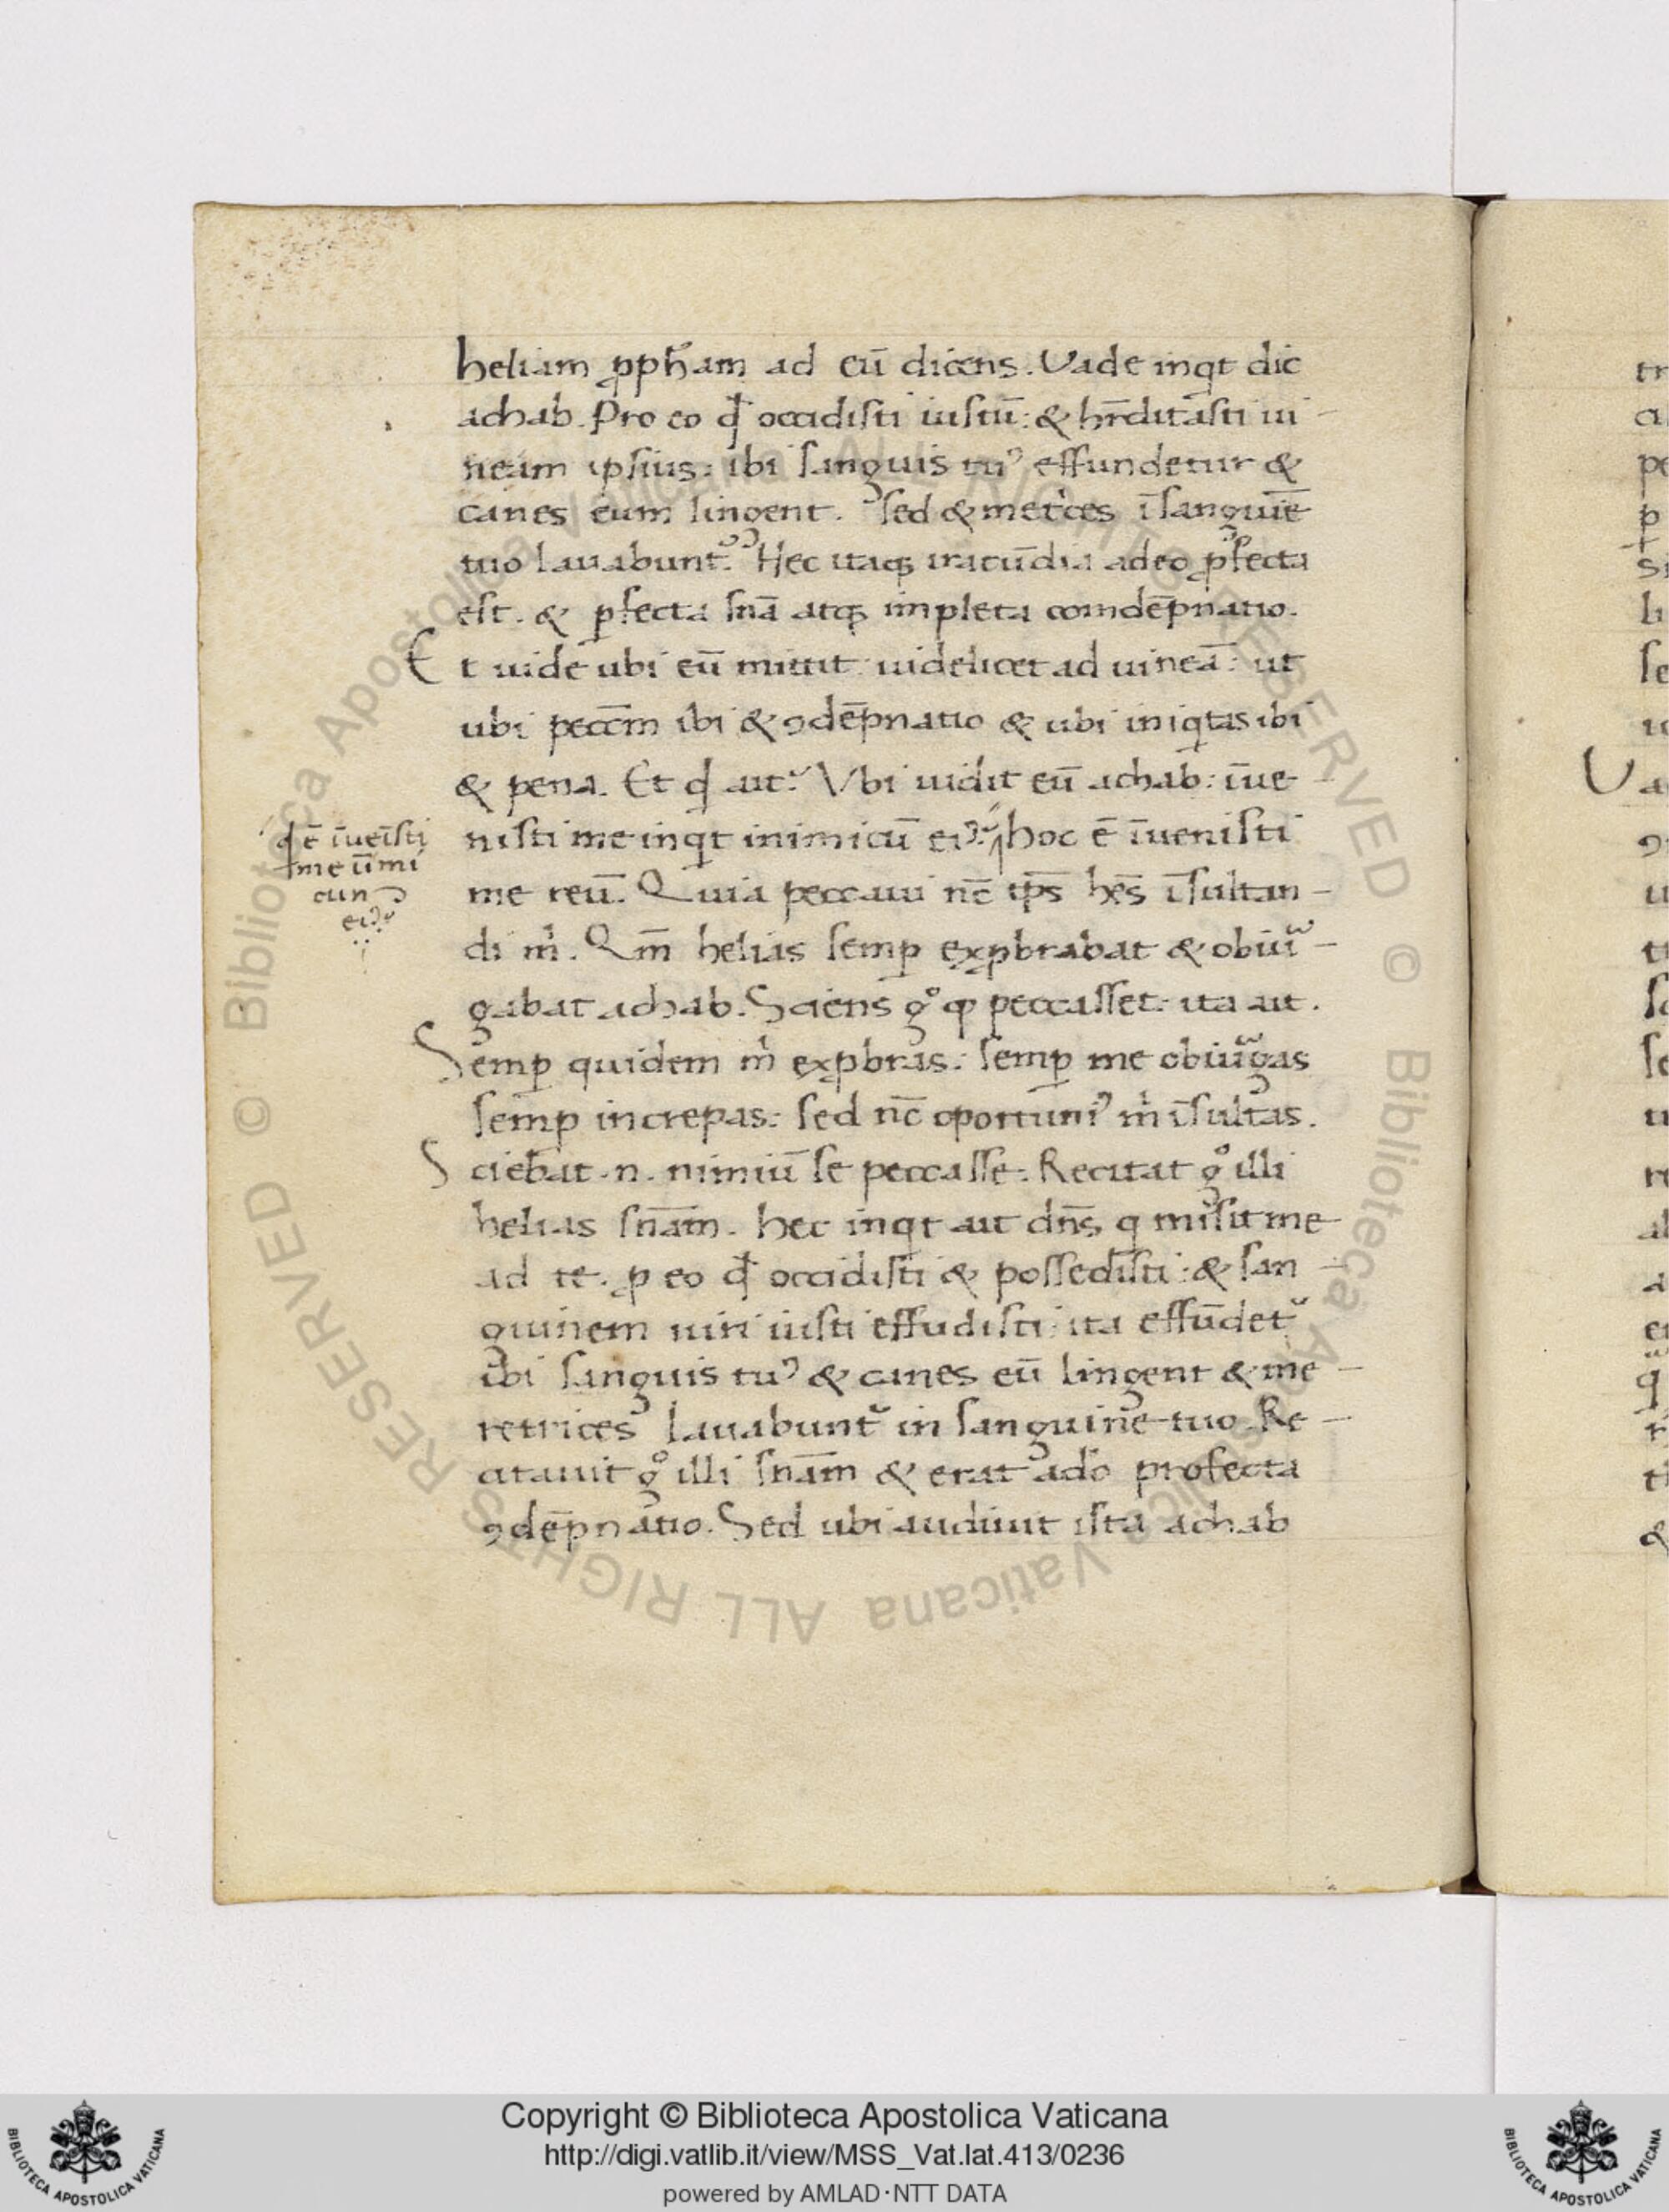 heliam ꝓpħam ad eū dicens. Vade inqͥt dic
achab. Pro eo qđ occidisti iustū: & hr̄ditasti ui
neam ipsius: ibi sanguis tuꝰ effundetur &
canes eum lingent. sed & met̾ces ī sanguīe
tuo lauabunt᷑. Hec itaqꝫ iracūdia adeo ꝓfecta
est. & ꝑfecta sn̄a atqꝫ impleta comdēpnatio.
Et uide ubi eū mittit: uidelicet ad uineā: ut
ubi pecc̄m ibi & ꝯdēpnatio & ubi iniqͥtas ibi
& pena. Et qͥd ait? Vbi uidit eū achab: īue
nisti me inqͥt inimicū eiꝰ? hoc ē īuenisti
me reū. Quia peccaui nc̄ tp̄s hēs īsultan
di m̍. Qm̄ helias semꝑ exꝓbrabat & obiur
gabat achab. Sciens gͦ ꝙ peccasset: ita ait.
Semꝑ quidem m̍ exꝓbras: semꝑ me obiurgas
semꝑ increpas: sed nc̄ oportuniꝰ m̍ īsultas.
Sciebat .n. nimiū se peccasse. Recitat gͦ illi
helias sn̄am. hec inqͥt ait dn̄s qͥ misit me
ad te. ꝓ eo qđ occidisti & possedisti: & san
guinem uiri iusti effudisti: ita effūdet᷑
ibi sanguis tuꝰ & canes eū lingent & me
retrices lauabunt᷑ in sanguine tuo. Re
citauit gͦ illi sn̄am & erat ado profecta
ꝯdēpnatio. Sed ubi audiuit ista achab
īueīsti
me
eiꝰ
© Biblioteca Apostolica Vaticana ALL RIGHTS RESERVED © Biblioteca Apostolica Vaticana ALL RIGHTS RESERVED
Copyright © Biblioteca Apostolica Vaticana
http://digi.vatlib.it/view/MSS_Vat.lat.413/0236
powered by AMLAD·NTT DATA
BIBLIOTECA APOSTOLICA VATICANA
BIBLIOTECA APOSTOLICA VATICANA